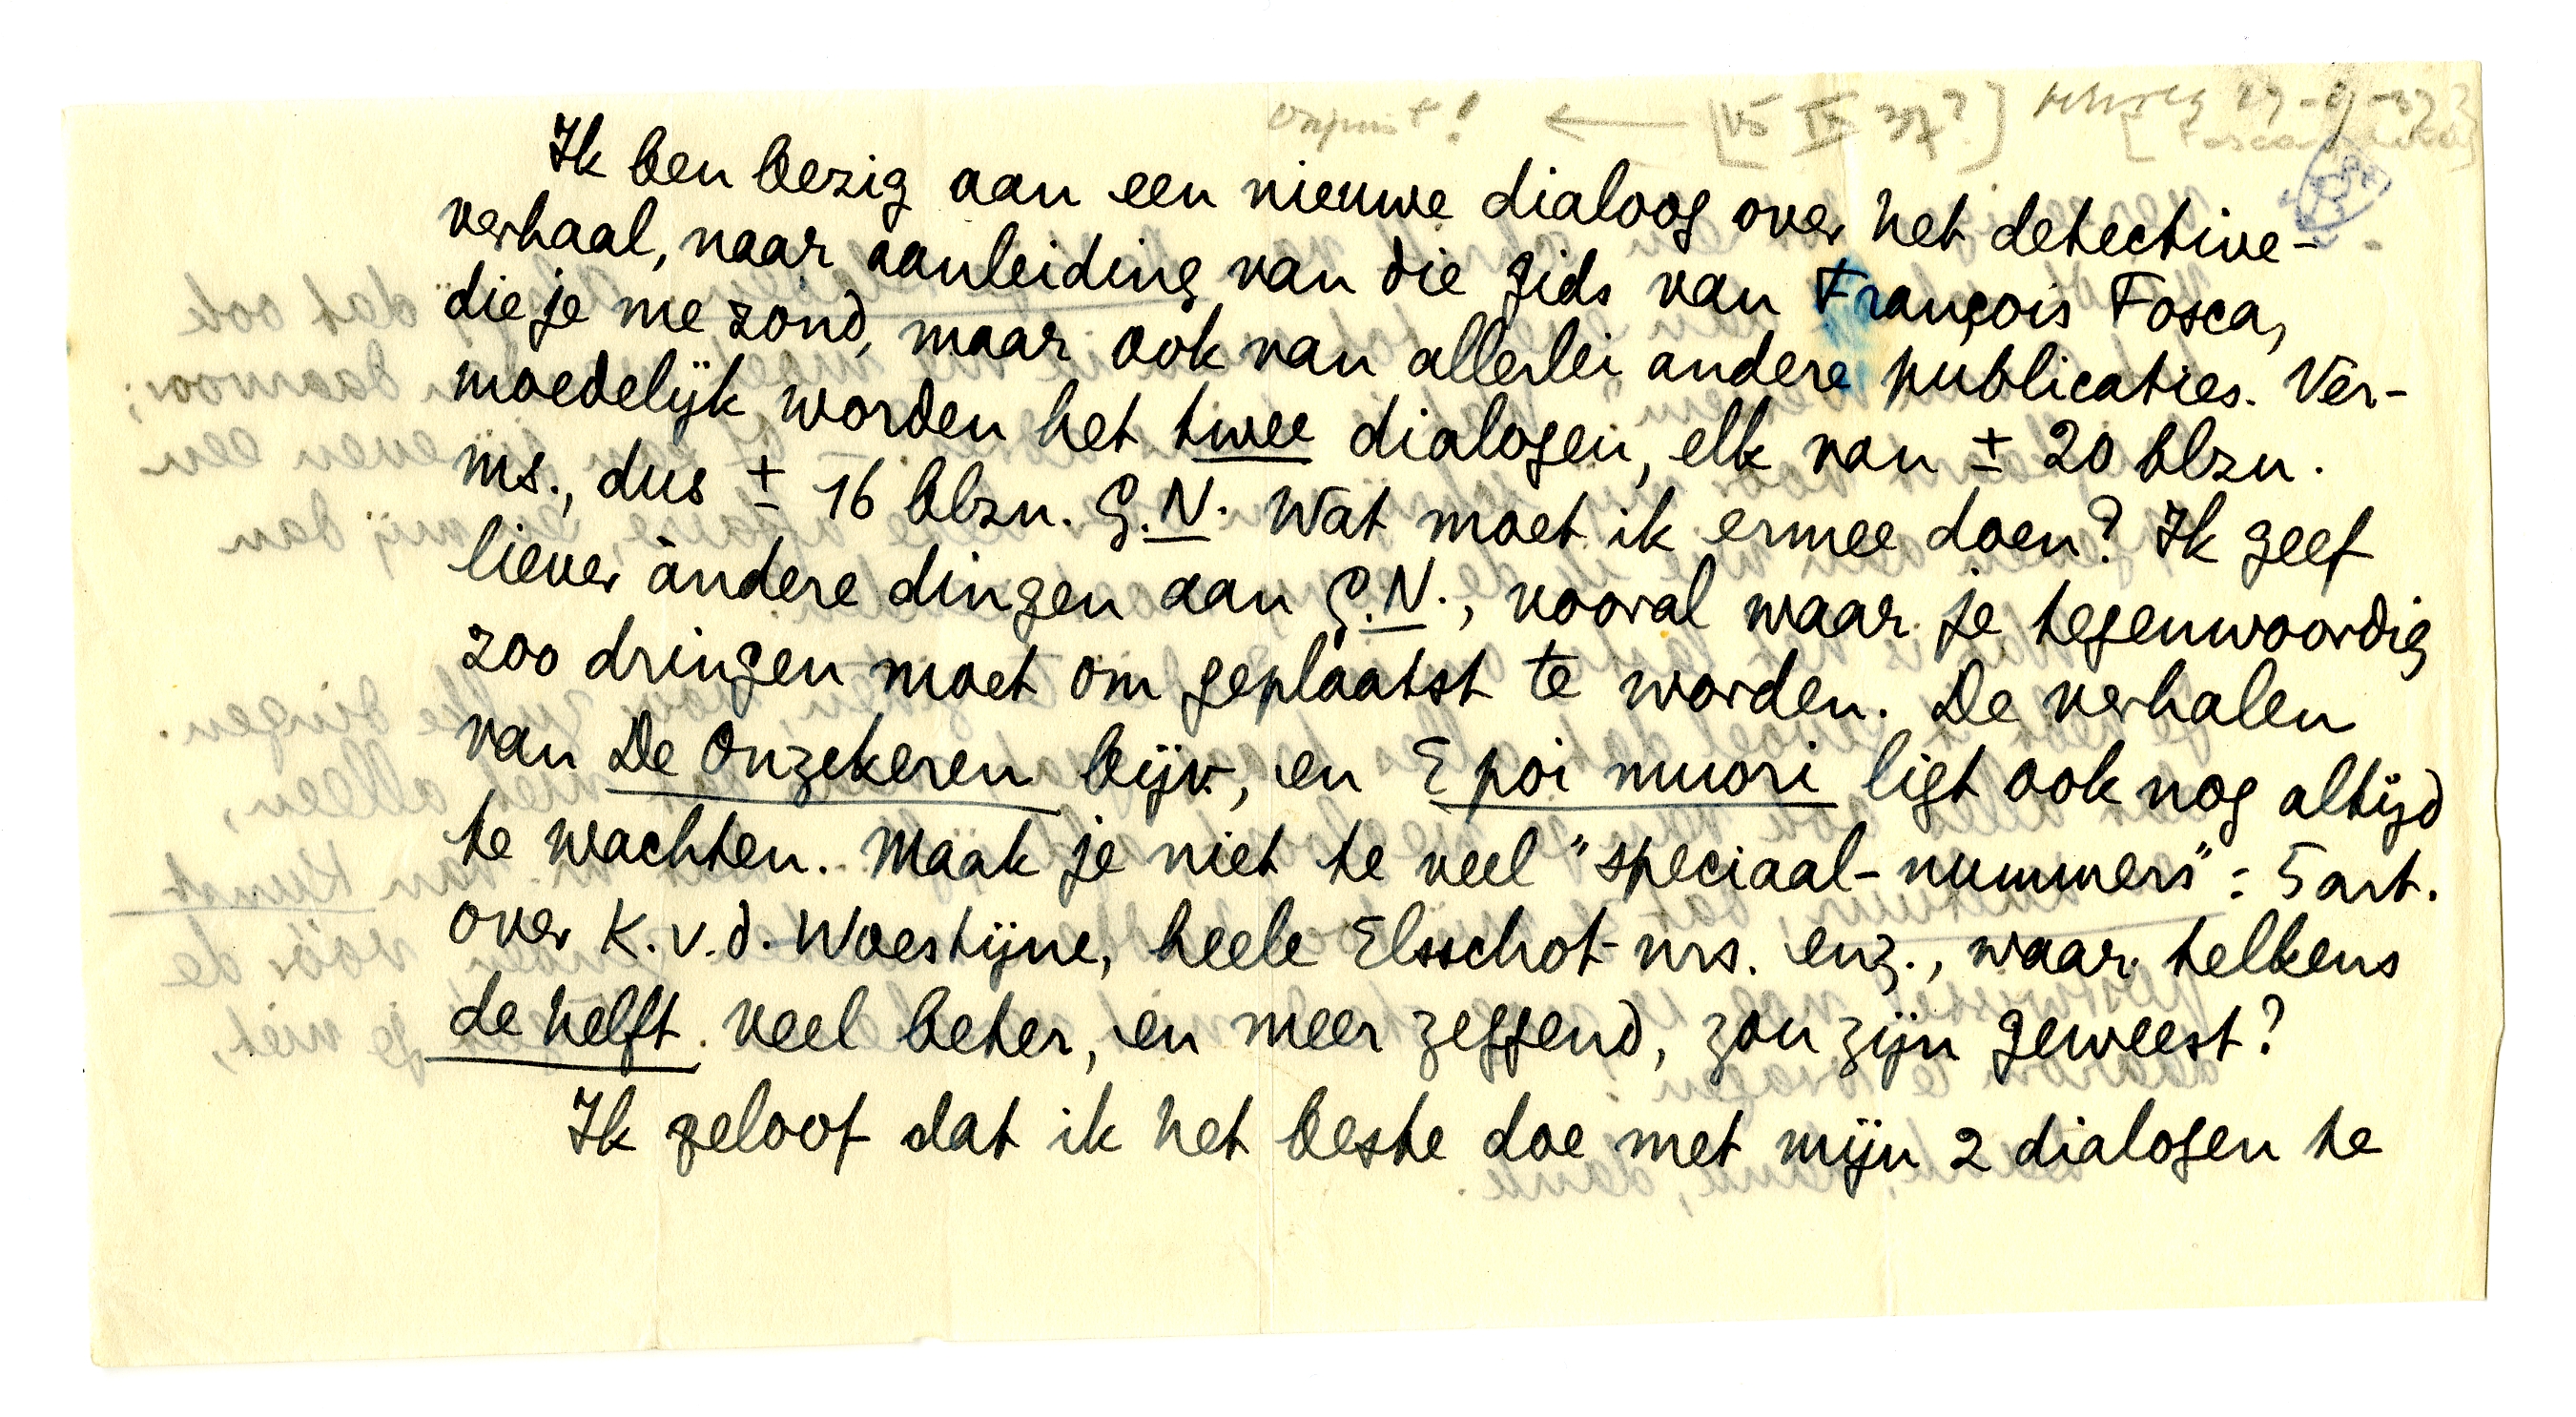 [V5 IX 37?]
Ik ben bezig aan een nieuwe dialoog over het detective-
verhaal, naar aanleiding van die gids van François Fosca,
die je me zond, maar ook van allerlei andere publicaties. Ver-
moedelijk worden het twee dialogen, elk van ± 20 blzn.
ms., dus ± 16 blzn. G.N. Wat moet ik ermee doen? Ik geef
liever àndere dingen aan G.N., vooral waar je tegenwoordig
zoo dringen moet om geplaatst te worden. De verhalen
van De Onzekeren bijv., en E poi muori ligt ook nog altijd
te wachten. Maak je niet te veel "speciaal-nummers": 5 art.
over K. v. d. Woestijne, heele Elsschot-nrs. enz., waar telkens
de helft veel beter, en meer zeggend, zou zijn geweest?
Ik geloof dat ik het beste doe met mijn 2 dialogen te